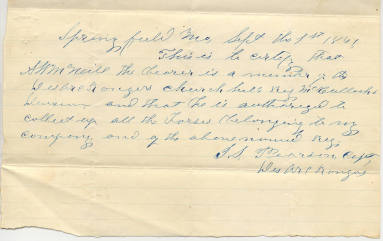 Springfield Mo Sept the 1st 1861
This is to certify that
A W McNeill the bearer is a member of the
Rangers Churchills Reg McCullochs
Division and that he is authorized to
collect up all the Horses belonging to my
company and of the above named Reg
T. S. Pearson Capt
Rangers